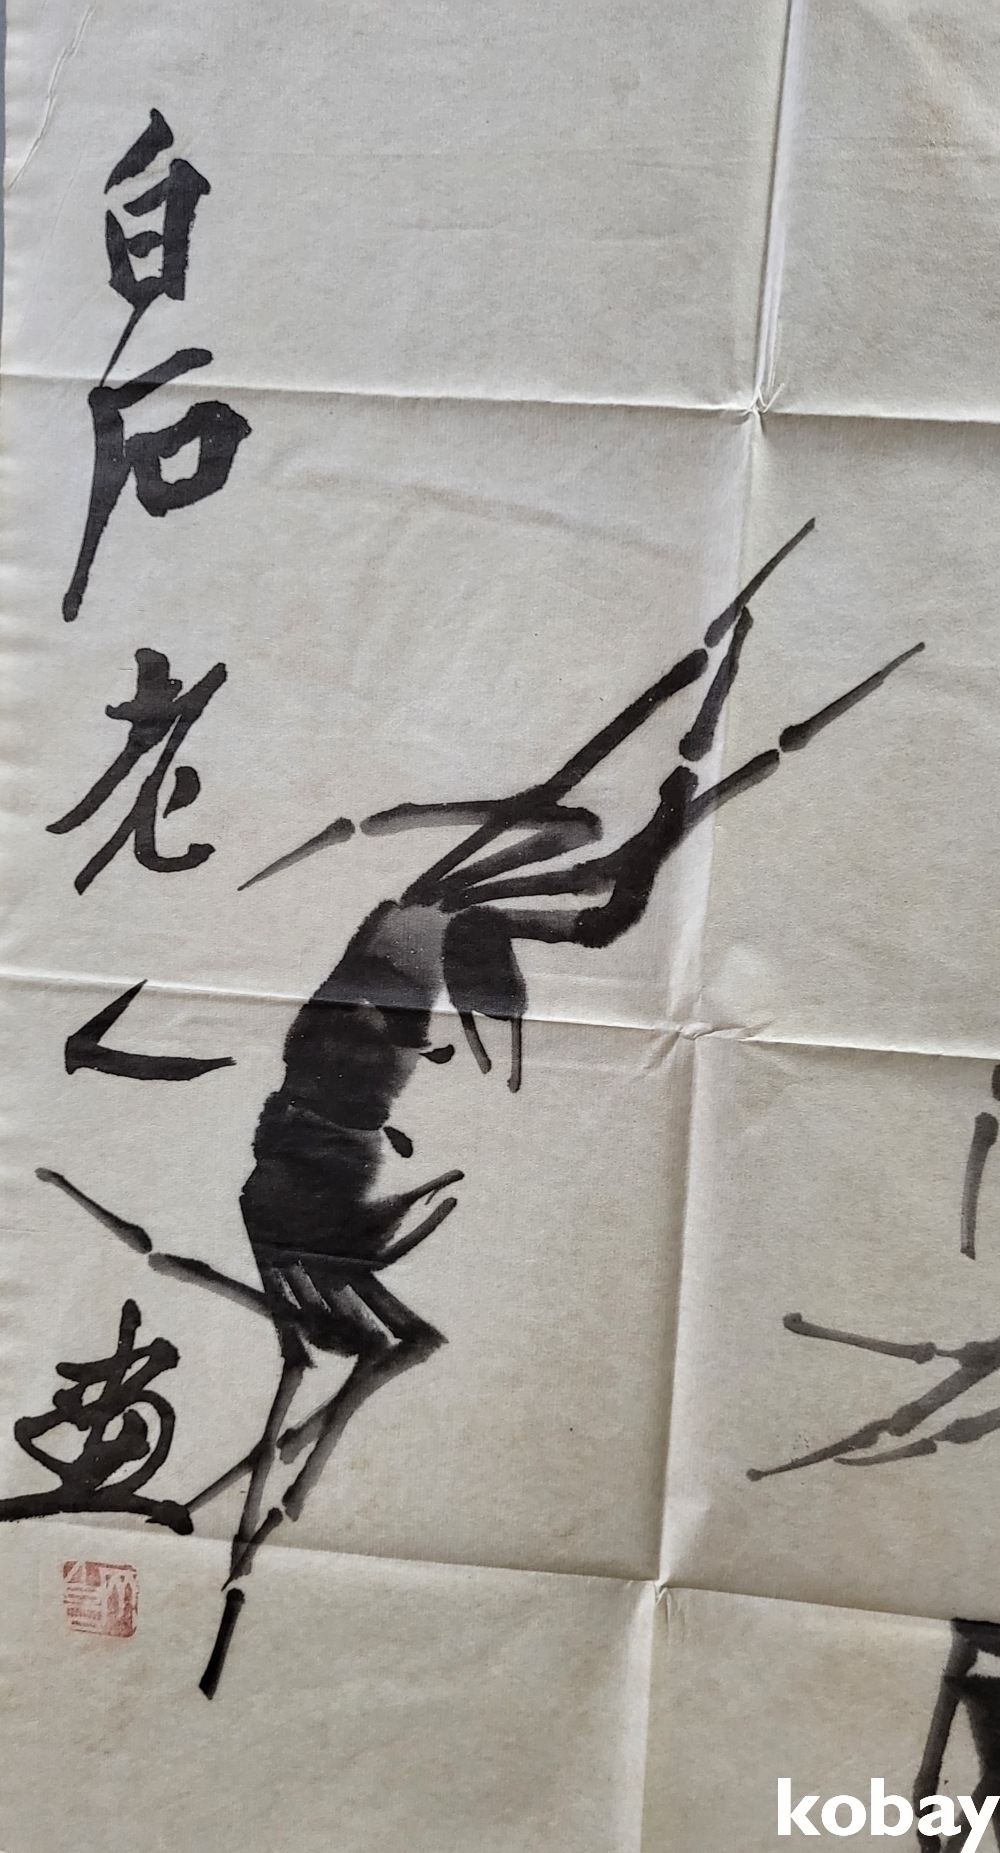 白石老人畫
kobay